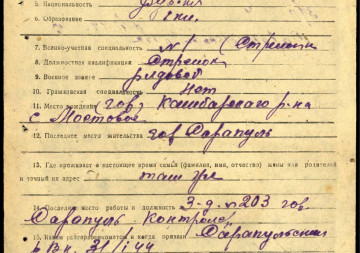 5. Национальность русский
6. Образование 5 кл.
7. Военно-учетная специальность №1 (Стрелки
8. Должностная квалификация Стрелок
9. Военное звание рядовой
10. Гражданская специальность Нет
11. Место рождения
с Мостовое
12. Последнее место жительства гор Сарапуль
13. Где проживает в настоящее время семья (фамилия, имя, отчество) жены или родителей
и точный их адрес там же
14. Последнее место работы и должность 3-д №203 гор
Сарапуль Контролер
15. Каким райвоенкоматом и когда призван Сарапульский
РВК 31/I 44